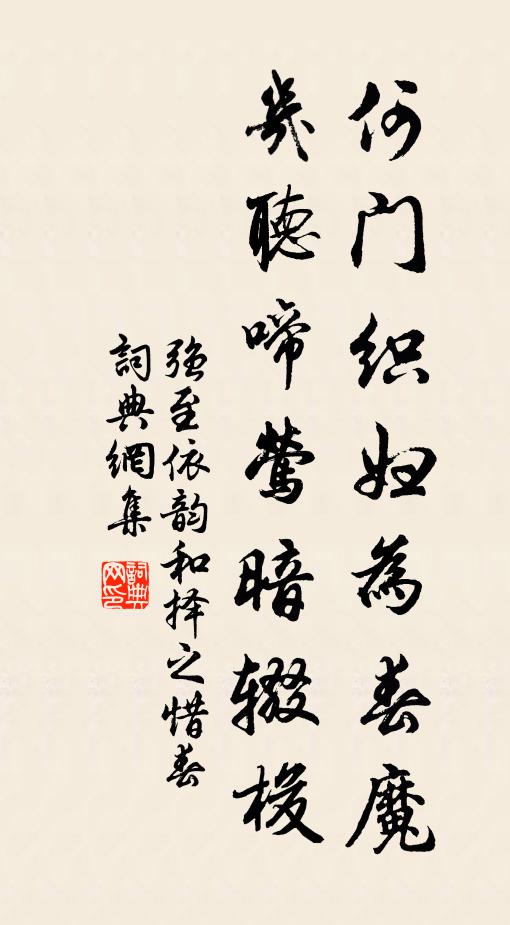 何门织妇為春魔
幾聽啼鶯暗辍梭
强至依韵和择之惜春
詞典網集
詞典网印